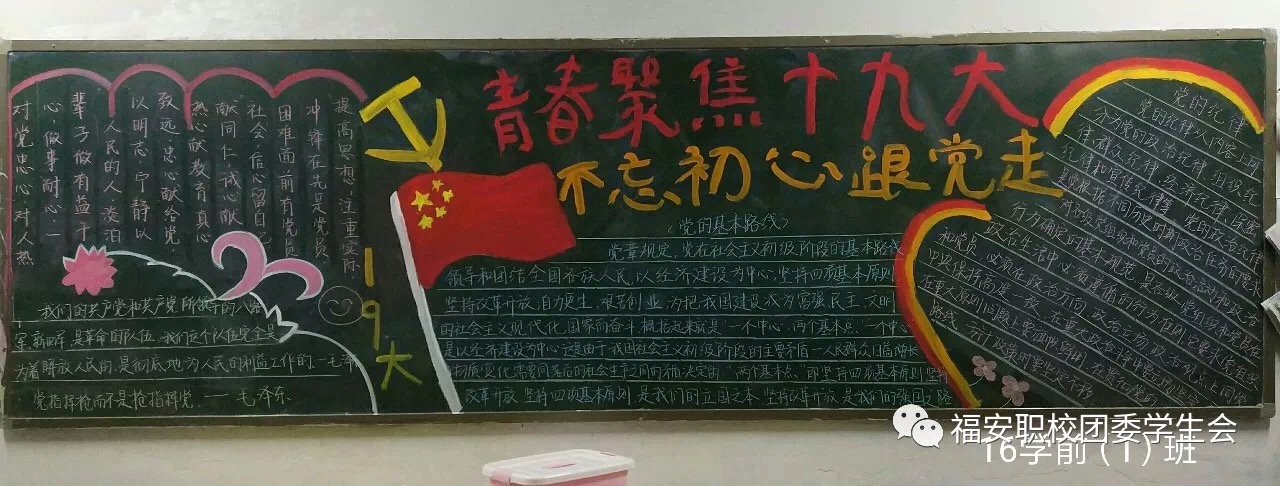 青春聚焦十九大
不忘初心跟党走
19大
提高思想,注重实际
冲锋在先是党员
困难面前有党员
社会,信心留自己
献同仁,诚心献
热心献教育,真心
致远,忠心献给党
以明志,宁静以
人民的人,淡泊
辈子做有益于
心,做事耐心,一
对党忠心,对人热
我们的共产党和共产党所领导的八路
军新四军,是革命的队伍,我们这个队伍完全是
为着解放人民的,是彻底地为人民的利益工作的。—毛泽
党指挥枪而不是枪指挥党。——毛泽东
《党的基本路线》
党章规定,党在社会主义初级阶段的基本路线
领导和团结全国各族人民,以经济建设为中心,坚持四项基本原则
坚持改革开放,自力更生,艰苦创业,为把我国建设成为富强民主,文明
的社会主义现代化国家而奋斗,概括起来就是"一个中心,两个基本点,一个中心
是以经济建设为中心,这是由于我国社会主义初级阶段的主要矛盾—人民群众日益增长
物质文化需要同落后的社会生产之间的矛盾决定的"两个基本点"即坚持四项基本原则坚持
改革开放,坚持四项基本原则是我们的立国之本,坚持改革开放是我们的强国之路
党的纪律
党的纪律从内容上可
分为党的政治纪律,组织纪
律,群众纪律,经济纪律,保密
纪律和宣传纪律等,党的政治纪律
福安职校团委学生会
16学前(1)班